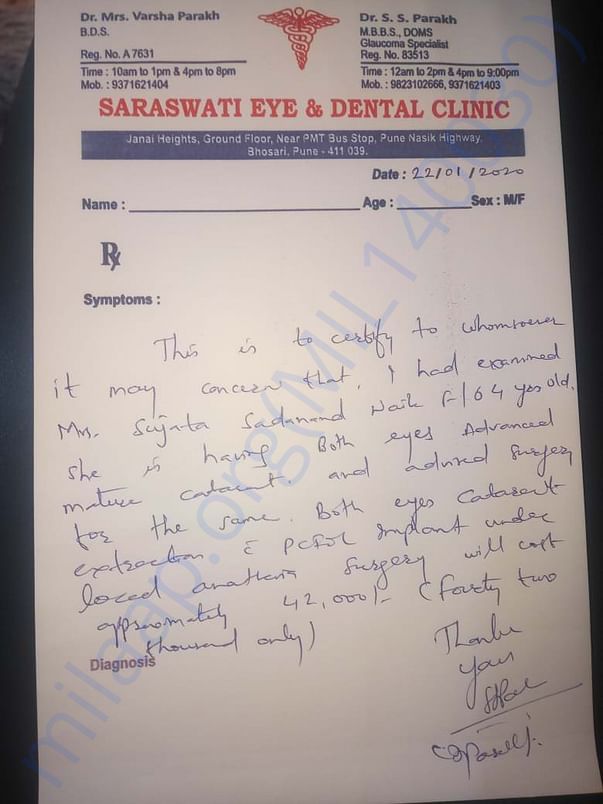 Dr. Mrs. Varsha Parakh
B.D.S.
Reg. No. A 7631
Time : 10am to 1pm & 4pm to 8pm
Mob. : 9371621404
Dr. S. S. Parakh
M.B.B.S., DOMS
Glaucoma Specialist
Reg. No. 83513
Time : 12am to 2pm & 4pm to 9:00pm
Mob. : 9823102666, 9371621403
SARASWATI EYE & DENTAL CLINIC
Janai Heights, Ground Floor, Near PMT Bus Stop, Pune Nasik Highway,
Bhosari, Pune - 411 039.
Date : 22/01/2020
Name : Age : Sex : M/F
Rx
Symptoms :
This is to certify to whomsoever
it may concern that, I had examined
Mrs. Sujata Sadanand Naik F/64 yrs old.
She is having Both eyes Advanced
mature cataract. and advised surgery
for the same. Both eyes Cataract
extraction c̄ PCIOL implant under
local surgery will cost
approximately 42,000/- (Fourty two
thousand only)
Diagnosis
Thanks
milaap.org(MIL140030)